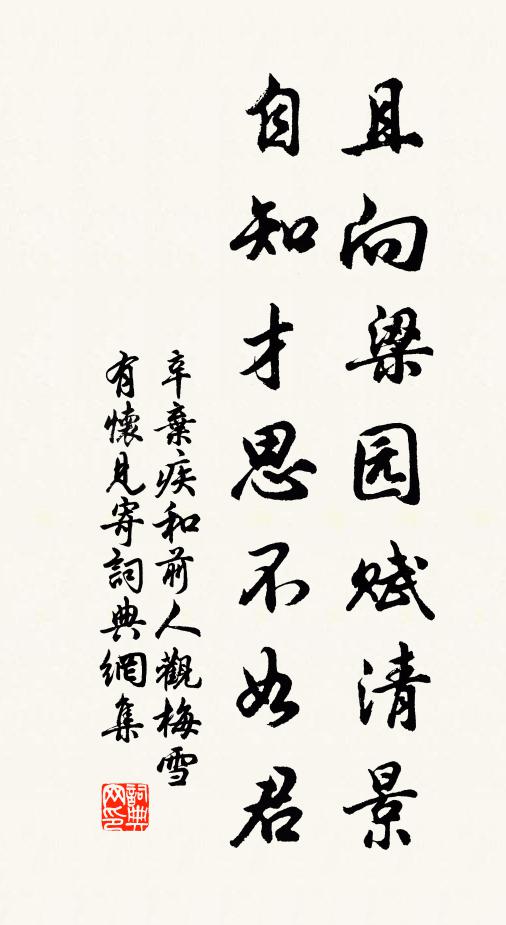 且向梁园赋清景
自知才思不如君
辛棄疾和前人觀梅雪
有懷見寄詞典網集
詞典
网印